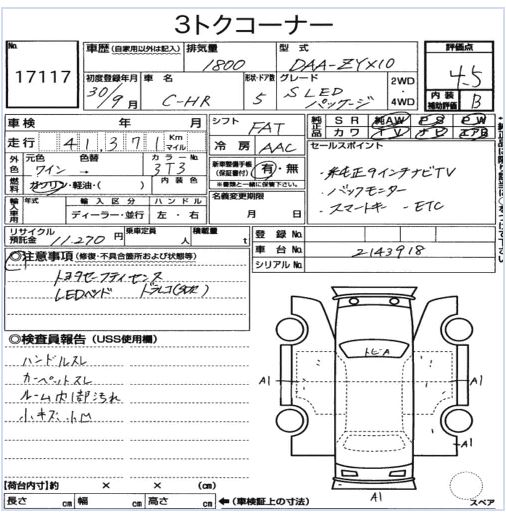 3トクコーナー
No.
17117
車歴(自家用以外は記入) 排気量 型式
1800 DAA-ZYX10
評価点
4.5
内装補助評価 B
初度登録年月 車名 形状・ドア数 グレード
30/9月 C-HR 5 S LEDパッケージ
2WD
・
4WD
車検 年 月
シフト FAT
純正品 SR 純AW PS PW
カワ TV ナビ エアB
走行 41,371 Km マイル
冷房 AAC
セールスポイント
外色 元色 色替 カラーNo.
ワイン → 3T3
新車整備手帳(保証書付) 有・無
※書類と一緒に保管下さい
・純正9インチナビTV
・バックモニター
・スマートキー ・ETC
燃料 ガソリン・軽油・( ) 内装色
名義変更期限
月 日
輸入車用 年式 輸入区分 ハンドル
ディーラー・並行 左・右
リサイクル預託金 11,270円 乗車定員 人 積載量 t
登録No.
車台No. 2143918
シリアルNo.
◎注意事項(修復・不具合箇所および状態等)
トヨタセーフティセンス
LEDヘッド ドラレコ
◎検査員報告(USS使用欄)
ハンドルスレ
カーペットスレ
ルーム内部汚れ
小キズ
トビA
A1
A1
A1
【荷台内寸】 × × (cm)
長さ cm 幅 cm 高さ cm ←(車検証上の寸法)
スペア